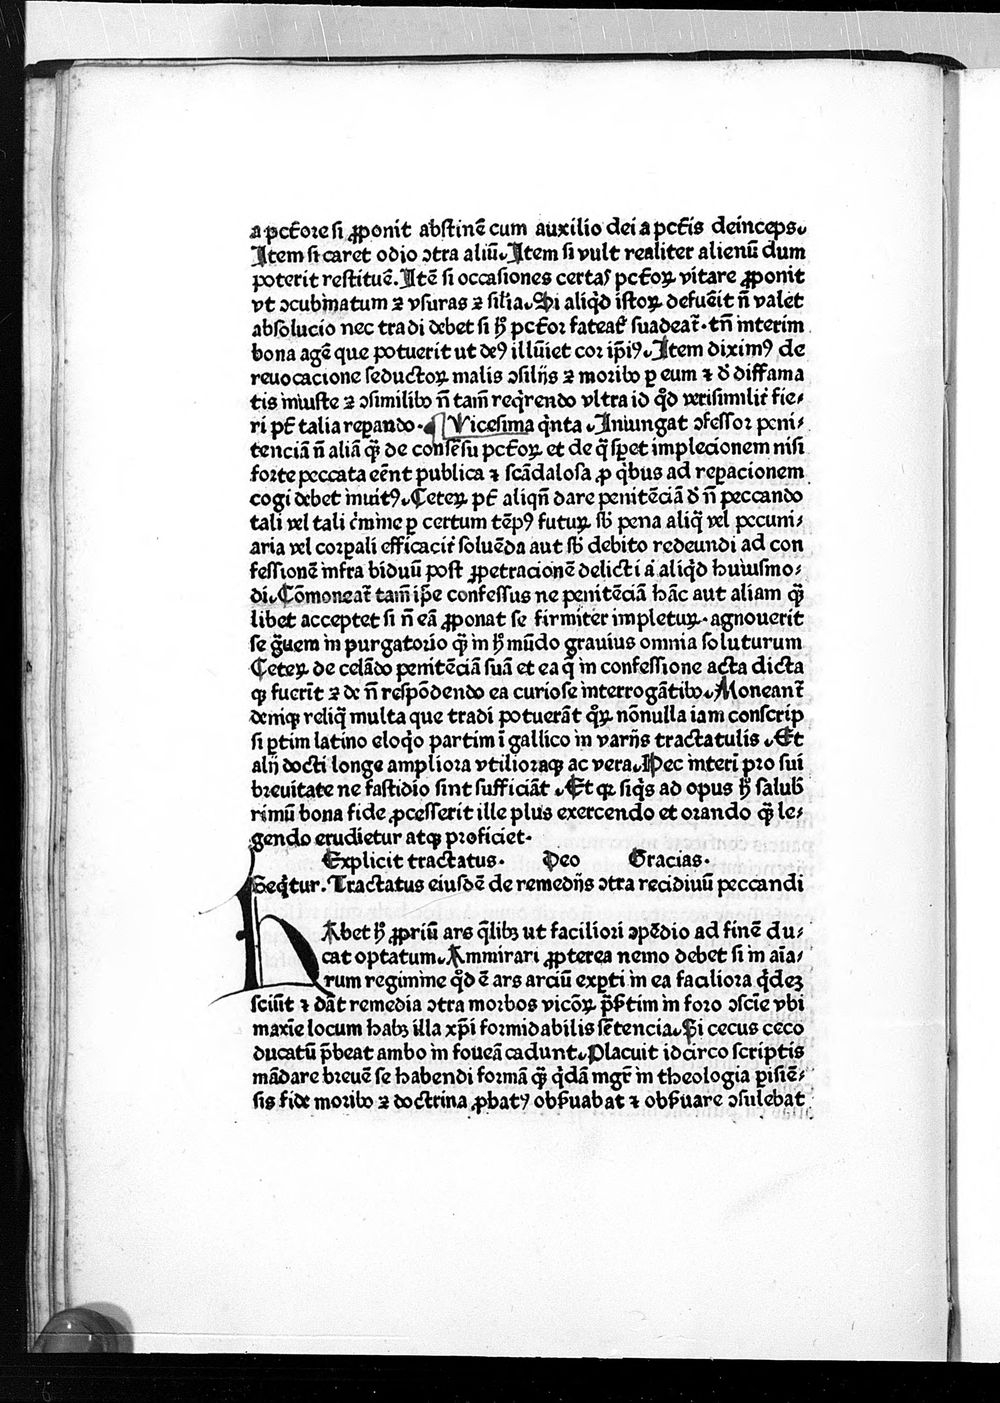 a pct̄ore si ꝓponit abstinē cum auxilio dei a pctīs deinceps.
Item si caret odio ↄtra aliū. Item si vult realiter alienū dum
poterit restituē. Itē si occasiones certas pct̄oꝝ vitare ꝓponit
vt ↄcubinatum ⁊ vsuras ⁊ sil̄ia. Si aliq̇d istoꝝ defuēit n̄ valet
absolucio nec tradi debet si hꝰ pct̄or fateat̄ suadeat̄. tn̄ interim
bona agē que potuerit ut deꝰ illūiet cor ip̄iꝰ. Item diximꝰ de
reuocacione seductoꝝ malis ↄsilijs ⁊ moribꝰ ꝑ eum ⁊ đ diffama
tis iniuste ⁊ ↄsimilibꝰ n̄ tam̄ req̇rendo vltra id qd̄ verisimilit̄ fie⸗
ri pt̄ talia repando. Vicesima q̇nta. Iniungat ↄfessor peni⸗
tenciā n̄ aliā q̄ꝫ de consēsu pct̄oꝝ et de q̄ sp̄et implecionem nisi
forte peccata eēnt publica ⁊ scādalosa ꝓ q̇bus ad repacionem
cogi debet inuitꝰ. Ceteꝝ pt̄ aliqn̄ dare penitēciā đ n̄ peccando
tali vel tali c̊mine ꝑ certum tēpꝰ futuꝝ sb̄ pena aliq̄ vel pecuni⸗
aria vel corꝑali efficacit̄ soluēda aut sb̄ debito redeundi ad con
fessionē infra biduū post ꝑpetracionē delicti a aliq̇d huiusmo⸗
di. Cōmoneat̄ tam̄ ip̄e confessus ne penitēciā hāc aut aliam q̄ꝫ
libet acceptet si n̄ eā ꝓponat se firmiter impletuꝝ. agnouerit
se g̊uem in purgatorio q̄ꝫ in hꝰ mūdo grauius omnia soluturum
Ceteꝝ de celādo penitēciā suā et ea q̄ in confessione acta dicta
qꝫ fuerīt ⁊ de n̄ respōdendo ea curiose interrogātibꝰ. Moneant̄
deniqꝫ reliq̄ multa que tradi potuerāt qꝝ nōnulla iam conscrip
si ꝑtim latino eloq̇o partim ī gallico in varijs tractatulis. Et
alij docti longe ampliora vtilioraqꝫ ac vera. Hec interī pro sui
breuitate ne fastidio sint sufficiāt. Et qꝛ siq̇s ad opus hꝰ salub̄
rimū bona fide ꝓcesserit ille plus exercendo et orando q̄ꝫ le⸗
gendo erudietur atqꝫ proficiet.
Explicit tractatus. Deo Gracias.
Seq̇tur. Tractatus eiusdē de remedijs ↄtra recidiuū peccandi
HAbet hꝰ ꝓpriū ars q̄libꝫ ut faciliori ↄpēdio ad finē du⸗
cat optatum. Ammirari ꝓpterea nemo debet si in aīa⸗
rum regimine qd̄ ē ars arciū exꝑti in ea faciliora q̇dez
sciūt ⁊ dāt remedia ↄtra morbos vicōꝝ p̄st̄im in foro ↄscīe vbi
maxīe locum habꝫ illa xp̄i formidabilis sētencia. Si cecus ceco
ducatū p̄beat ambo in foueā cadunt. Placuit idcirco scriptis
mādare breuē se habendi formā q̄ꝫ q̇dā mgr̄ in theologia ꝑisiē⸗
sis fide moribꝰ ⁊ doctrina ꝓbatꝰ obs̄uabat ⁊ obs̄uare ↄsulebat